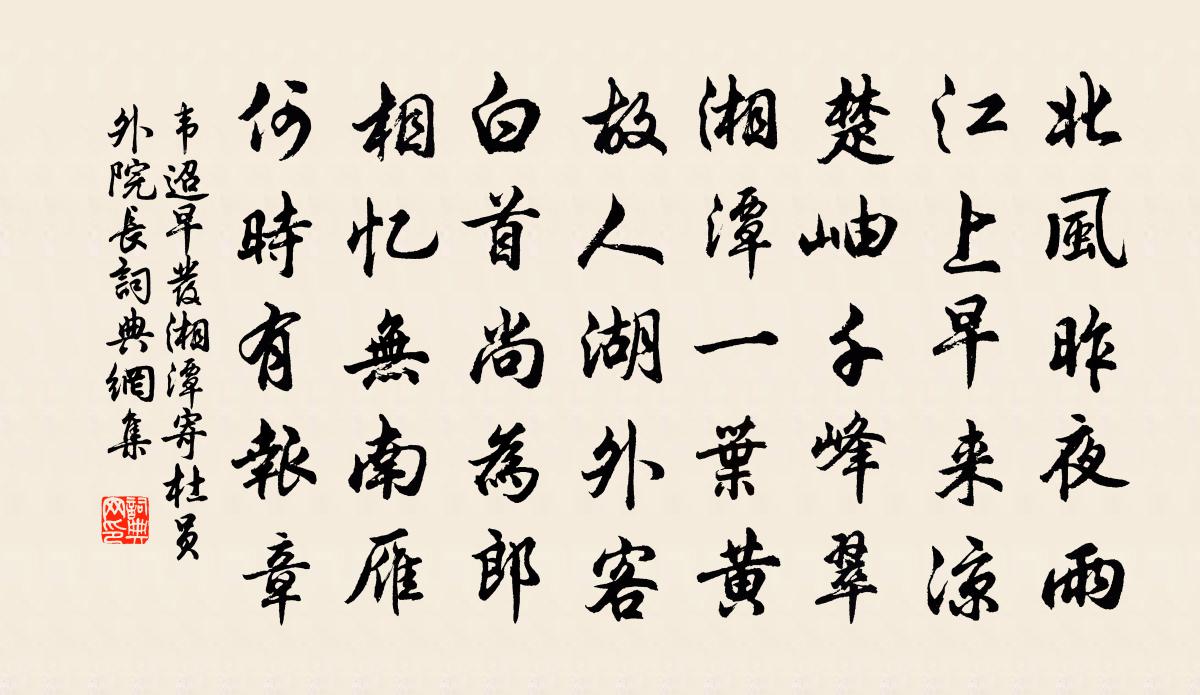 北風昨夜雨
江上早来涼
楚岫千峰翠
湘潭一葉黄
故人湖外客
白首尚為郎
相忆無南雁
何時有報章
韦迢早發湘潭寄杜员
外院長詞典網集
詞典网印